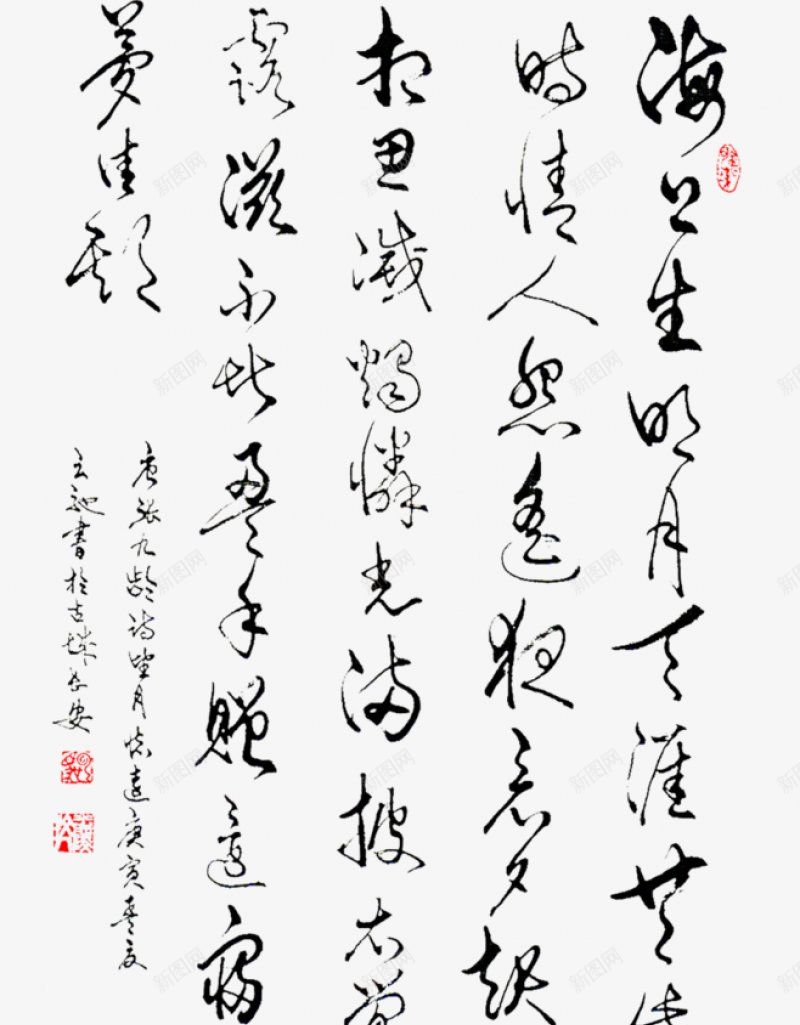 海上生明月天涯共
時情人怨遙夜竟夕起
相思滅燭憐光滿披衣覺
露滋不堪盈手贈還寢
夢佳期
唐張九齡詩望月懷遠庚寅
書於古城長安
新图网